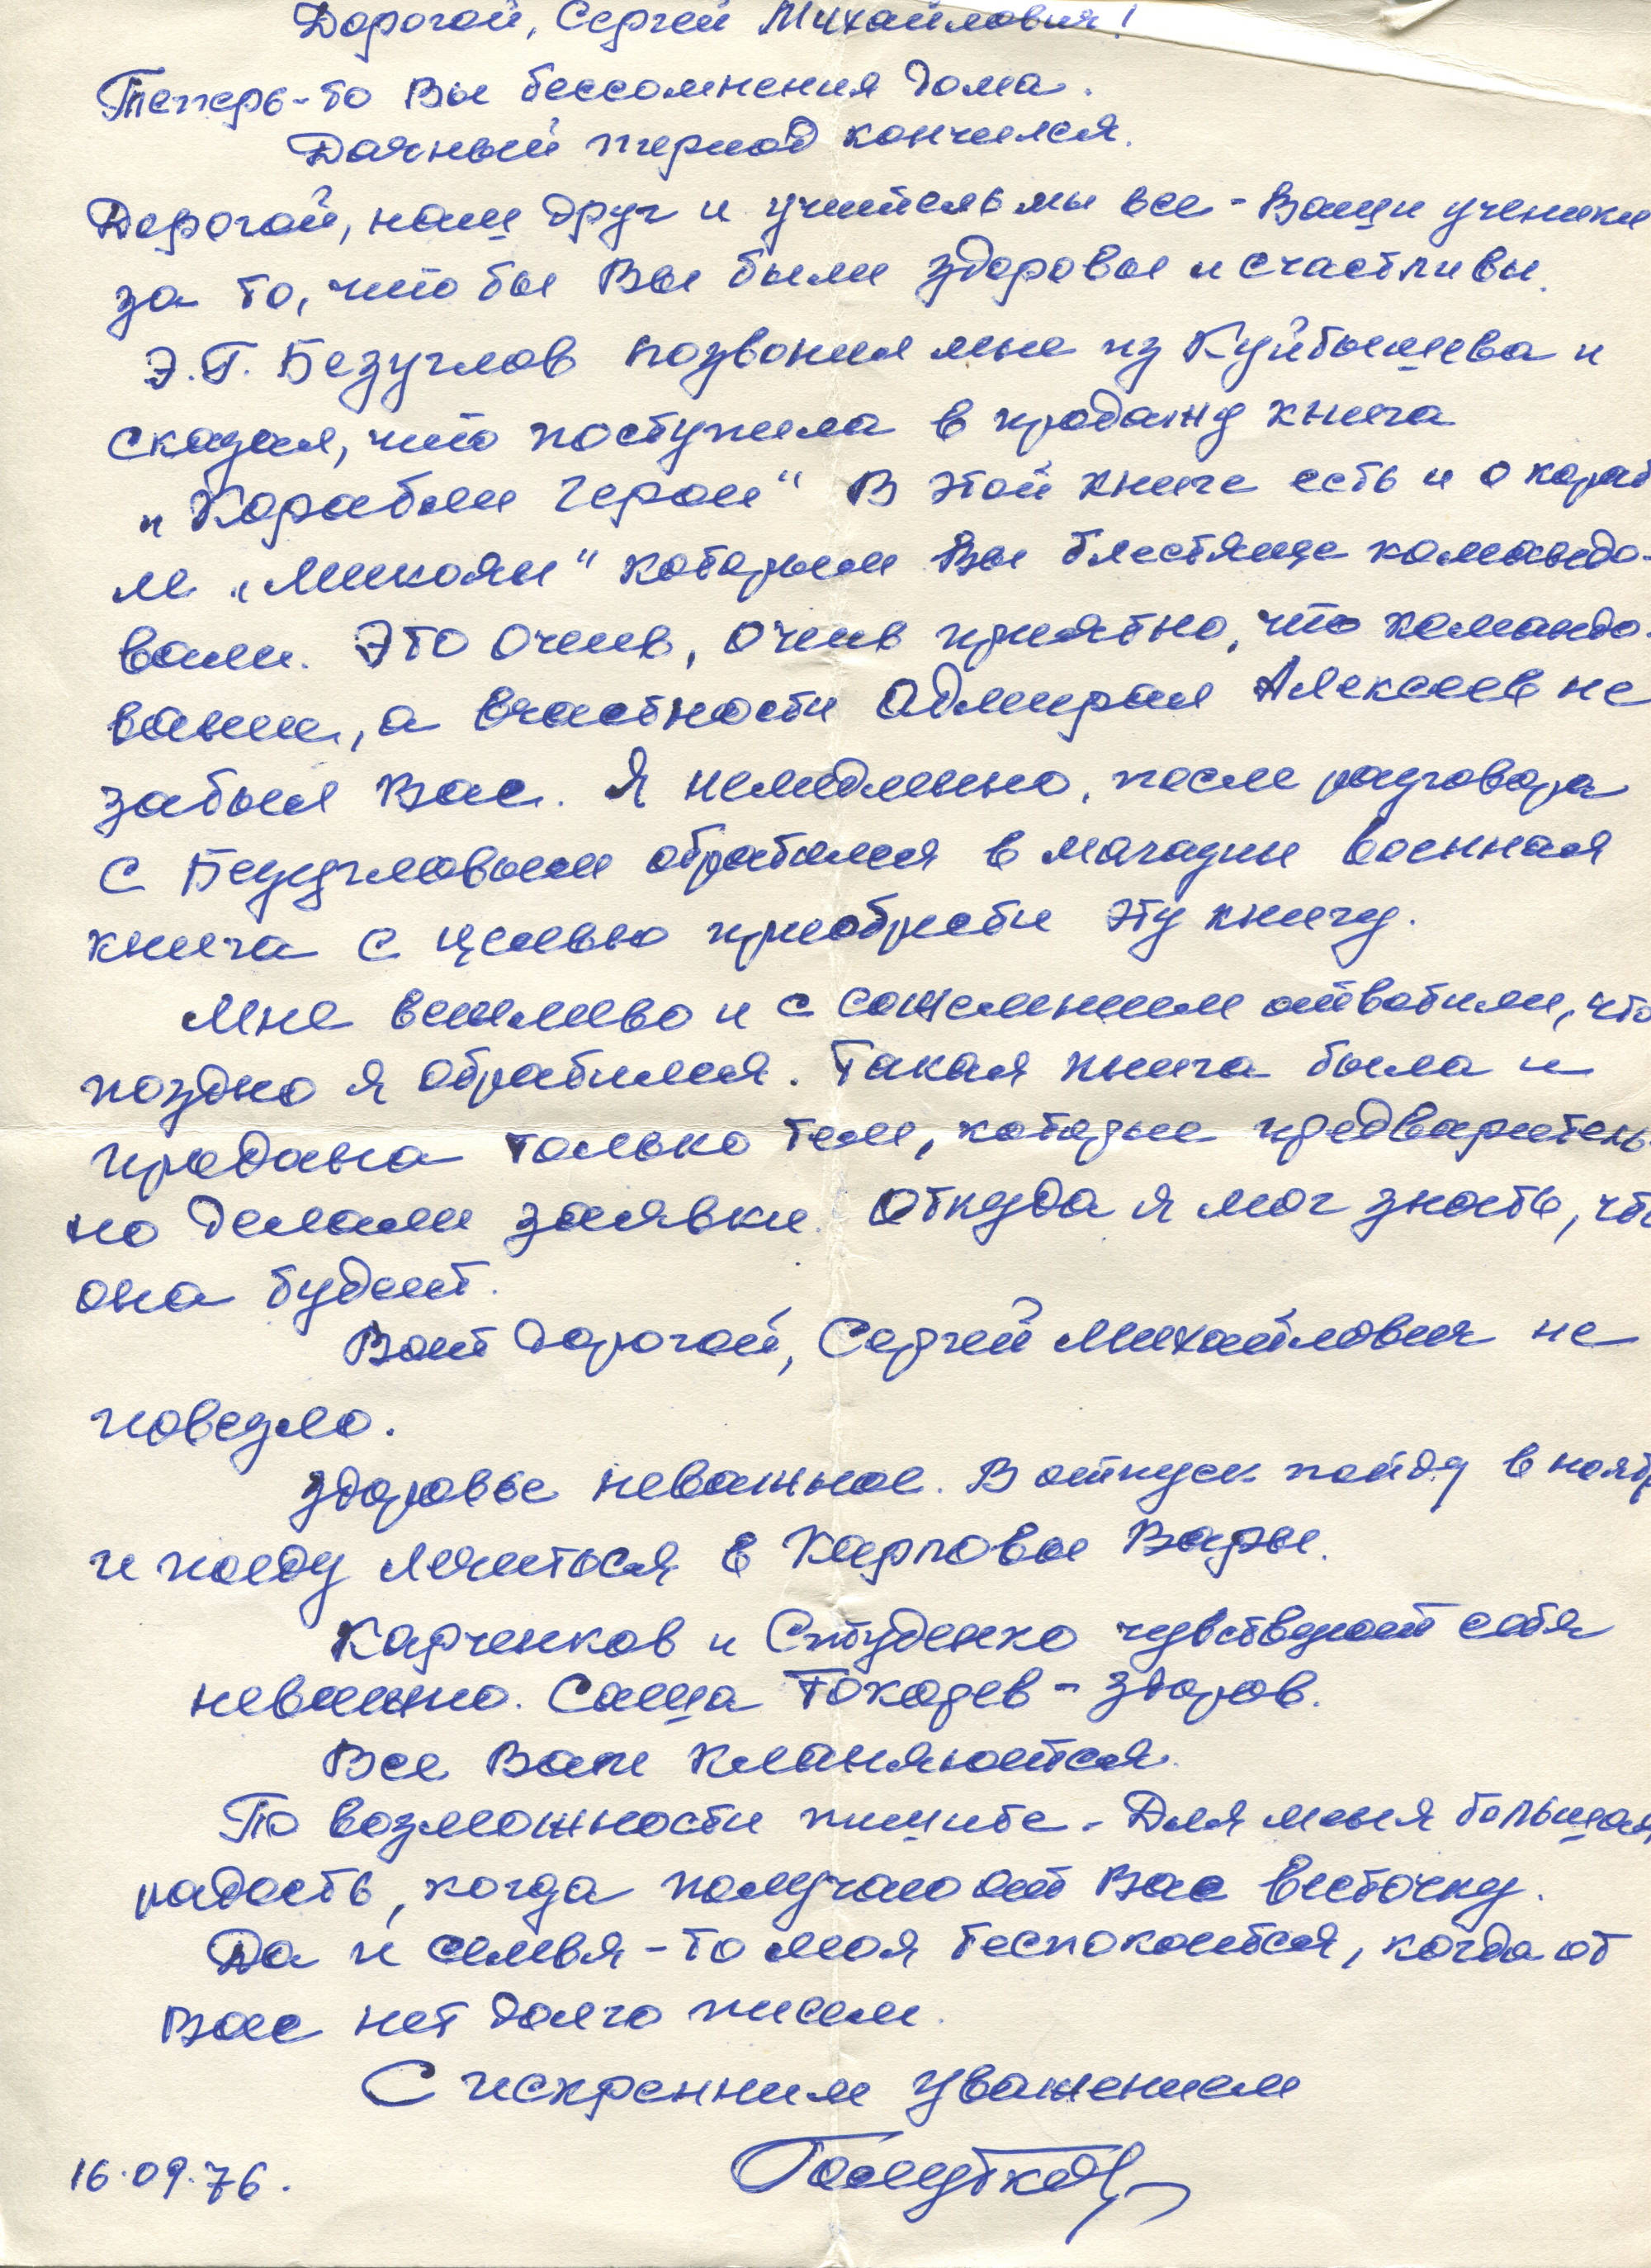 Дорогой, Сергей Михайлович!
Теперь-то Вы бессомнения дома.
Дачный период кончился.
Дорогой, наш друг и учитель мы все - Ваши ученики
за то, что бы Вы были здоровы и счастливы.
Э.Г. Безуглов позвонил мне из Куйбышева и
сказал, что поступила в продажу книга
„Корабли герои" В этой книге есть и о кораб
ле „Микоян" которым Вы блестяще командо-
вали. Это очень, очень приятно, что командо-
вание, а вчастности Адмирал Алексеев не
забыл Вас. Я немедленно, после разговора
с Безугловым обратился в магазин военная
книга с целью приобрести эту книгу.
Мне вежливо и с сожелением ответили, что
поздно я обратился. Такая книга была и
продана только тем, которые предваритель
но делали заявки. Откуда я мог знать, что
она будет.
Вот дорогой, Сергей Михайлович не
повезло.
Здоровье неважное. В отпуск пойду в нояб
и поеду лечиться в Карловы Вары.
Карченков и Студенко чувствуют себя
неважно. Саша Токарев - здоров.
Все Вам кланяются.
По возможности пишите. Для меня большая
радость, когда получаю от Вас весточку.
Да и семья-то моя беспокоится, когда от
Вас нет долго писем.
С искренним уважением
16.09.76.